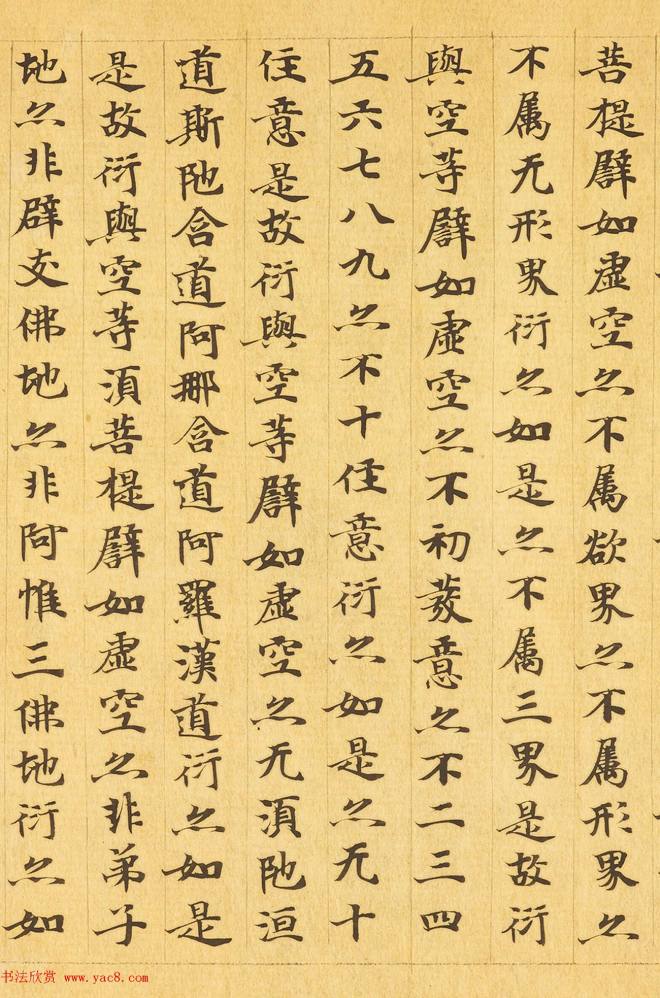 菩提譬如虛空亦不属欲界亦不属形界亦
不属无形界衍亦如是亦不属三界是故衍
與空等譬如虛空亦不初發意亦不二三四
五六七八九亦不十住意衍亦如是亦无十
住意是故衍與空等譬如虛空亦无須陁洹
道斯陁含道阿那含道阿羅漢道衍亦如是
是故衍與空等須菩提譬如虛空亦非弟子
地亦非辟支佛地亦非阿惟三佛地衍亦如
书法欣赏 www.yac8.com